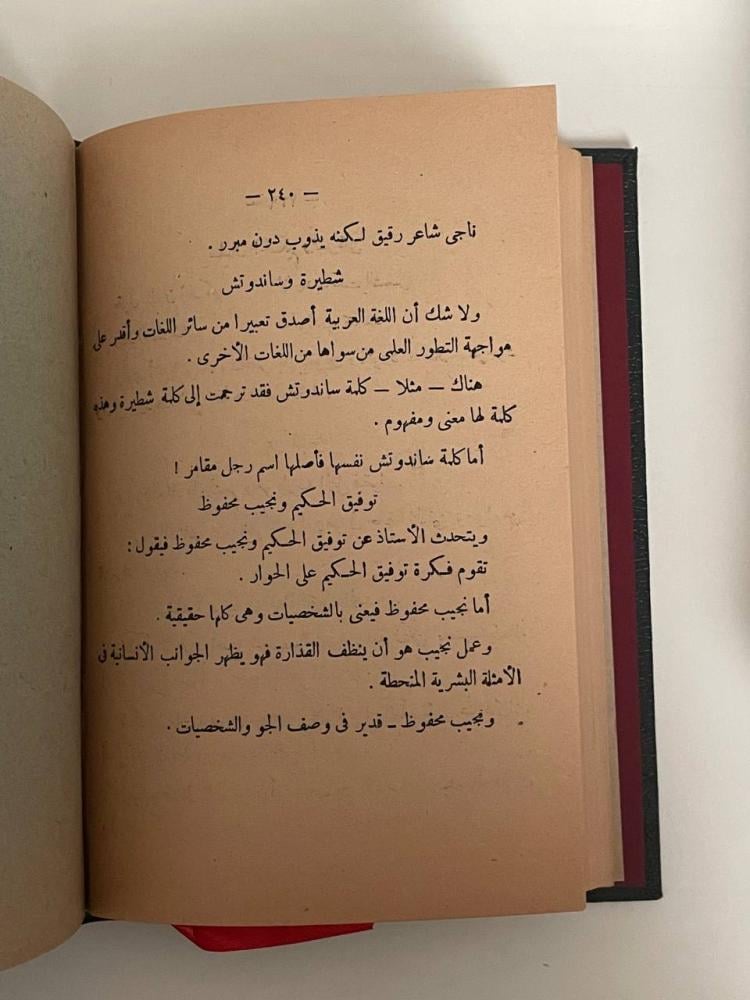 — ٢٤٠ —
ناجى شاعر رقيق لكنه يذوب دون مبرر .
شطيرة وساندوتش
ولا شك أن اللغة العربية أصدق تعبيرا من سائر اللغات وأقدر على
مواجهة التطور العلمى من سواها من اللغات الأخرى .
هناك — مثلا — كلمة ساندوتش فقد ترجمت إلى كلمة شطيرة وهذه
كلمة لها معنى ومفهوم .
أما كلمة ساندوتش نفسها فأصلها اسم رجل مقامر !
توفيق الحكيم ونجيب محفوظ
ويتحدث الأستاذ عن توفيق الحكيم ونجيب محفوظ فيقول :
تقوم فكرة توفيق الحكيم على الحوار .
أما نجيب محفوظ فيعنى بالشخصيات وهى كلها حقيقية .
وعمل نجيب هو أن ينظف القذارة فهو يظهر الجوانب الأنسانية فى
الأمثلة البشرية المنحطة .
ونجيب محفوظ – قدير فى وصف الجو والشخصيات .